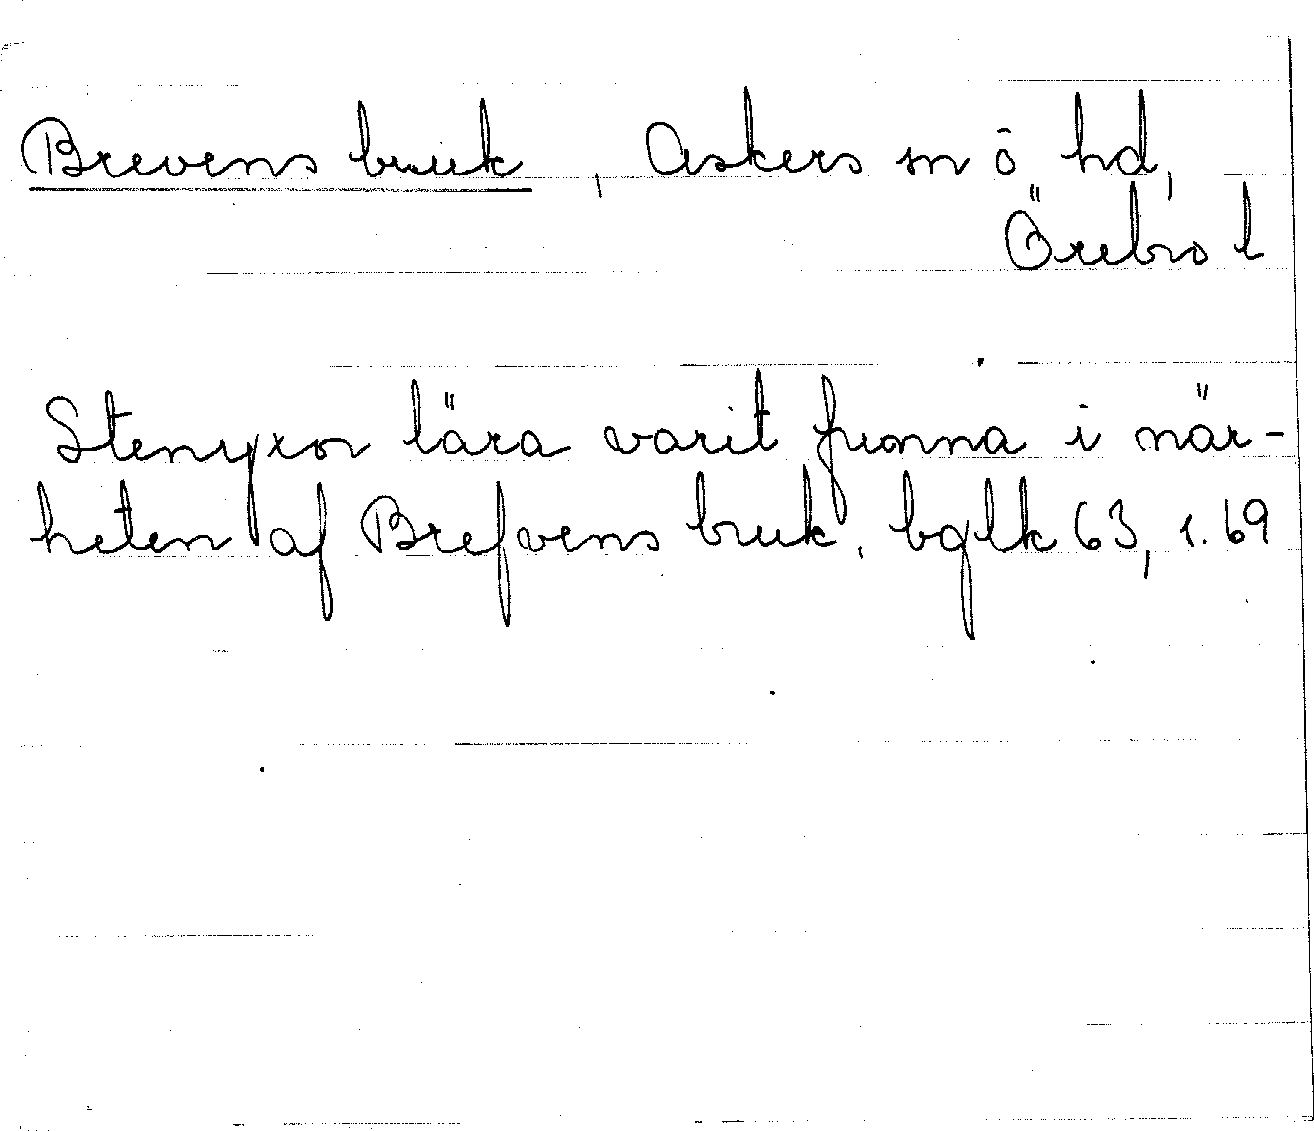 Brevens bruk, Askers sn o hd,
Örebro l
Stenyxor lära varit funna i när-
heten af Brefvens bruk. bglk 63, s. 69